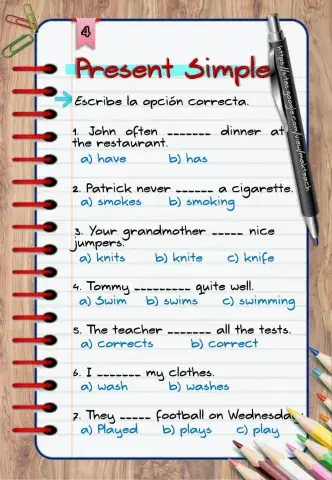 4
Present Simple
Escribe la opción correcta.
1. John often _______ dinner at
the restaurant.
a) have b) has
2. Patrick never ______ a cigarette.
a) smokes b) smoking
3. Your grandmother _____ nice
jumpers.
a) knits b) knite c) knife
4. Tommy _________ quite well.
a) Swim b) swims c) swimming
5. The teacher _______ all the tests.
a) corrects b) correct
6. I _______ my clothes.
a) wash b) washes
7. They _____ football on Wednesday
a) Played b) plays c) play